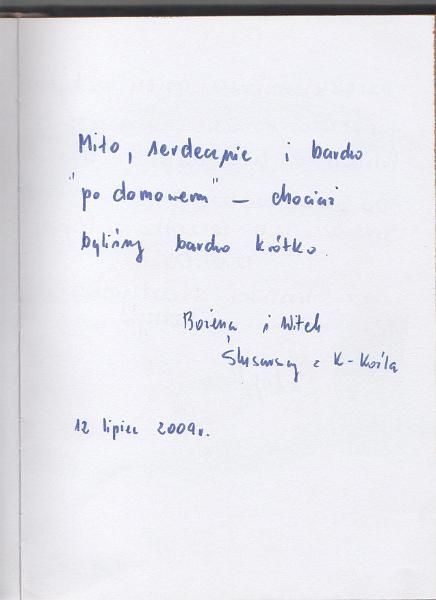 Miło, serdecznie i bardzo
"po domowemu" – chociaż
byliśmy bardzo krótko.
Bożena i Witek
Ślusarscy z K-Koźla
12 lipiec 2009r.